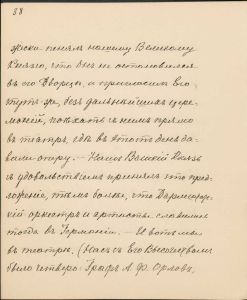 88
жески пенял нашему Великому
Князю, что Онъ не остановился
въ его Дворцѣ, и пригласилъ Его
тутъ же, безъ дальнѣйшихъ цере-
моній, поѣхать съ нимъ прямо
въ театръ, гдѣ въ этотъ день да-
вали оперу. — Нашъ Великій Князь
съ удовольствіемъ принялъ это пред-
ложеніе, тѣмъ болѣе, что Дармштадт-
скій оркестръ и артисты славились
тогда въ Германіи. — И вотъ мы
въ театрѣ. (Насъ съ Его Высочествомъ
было четверо: Графъ А. Ѳ. Орловъ,